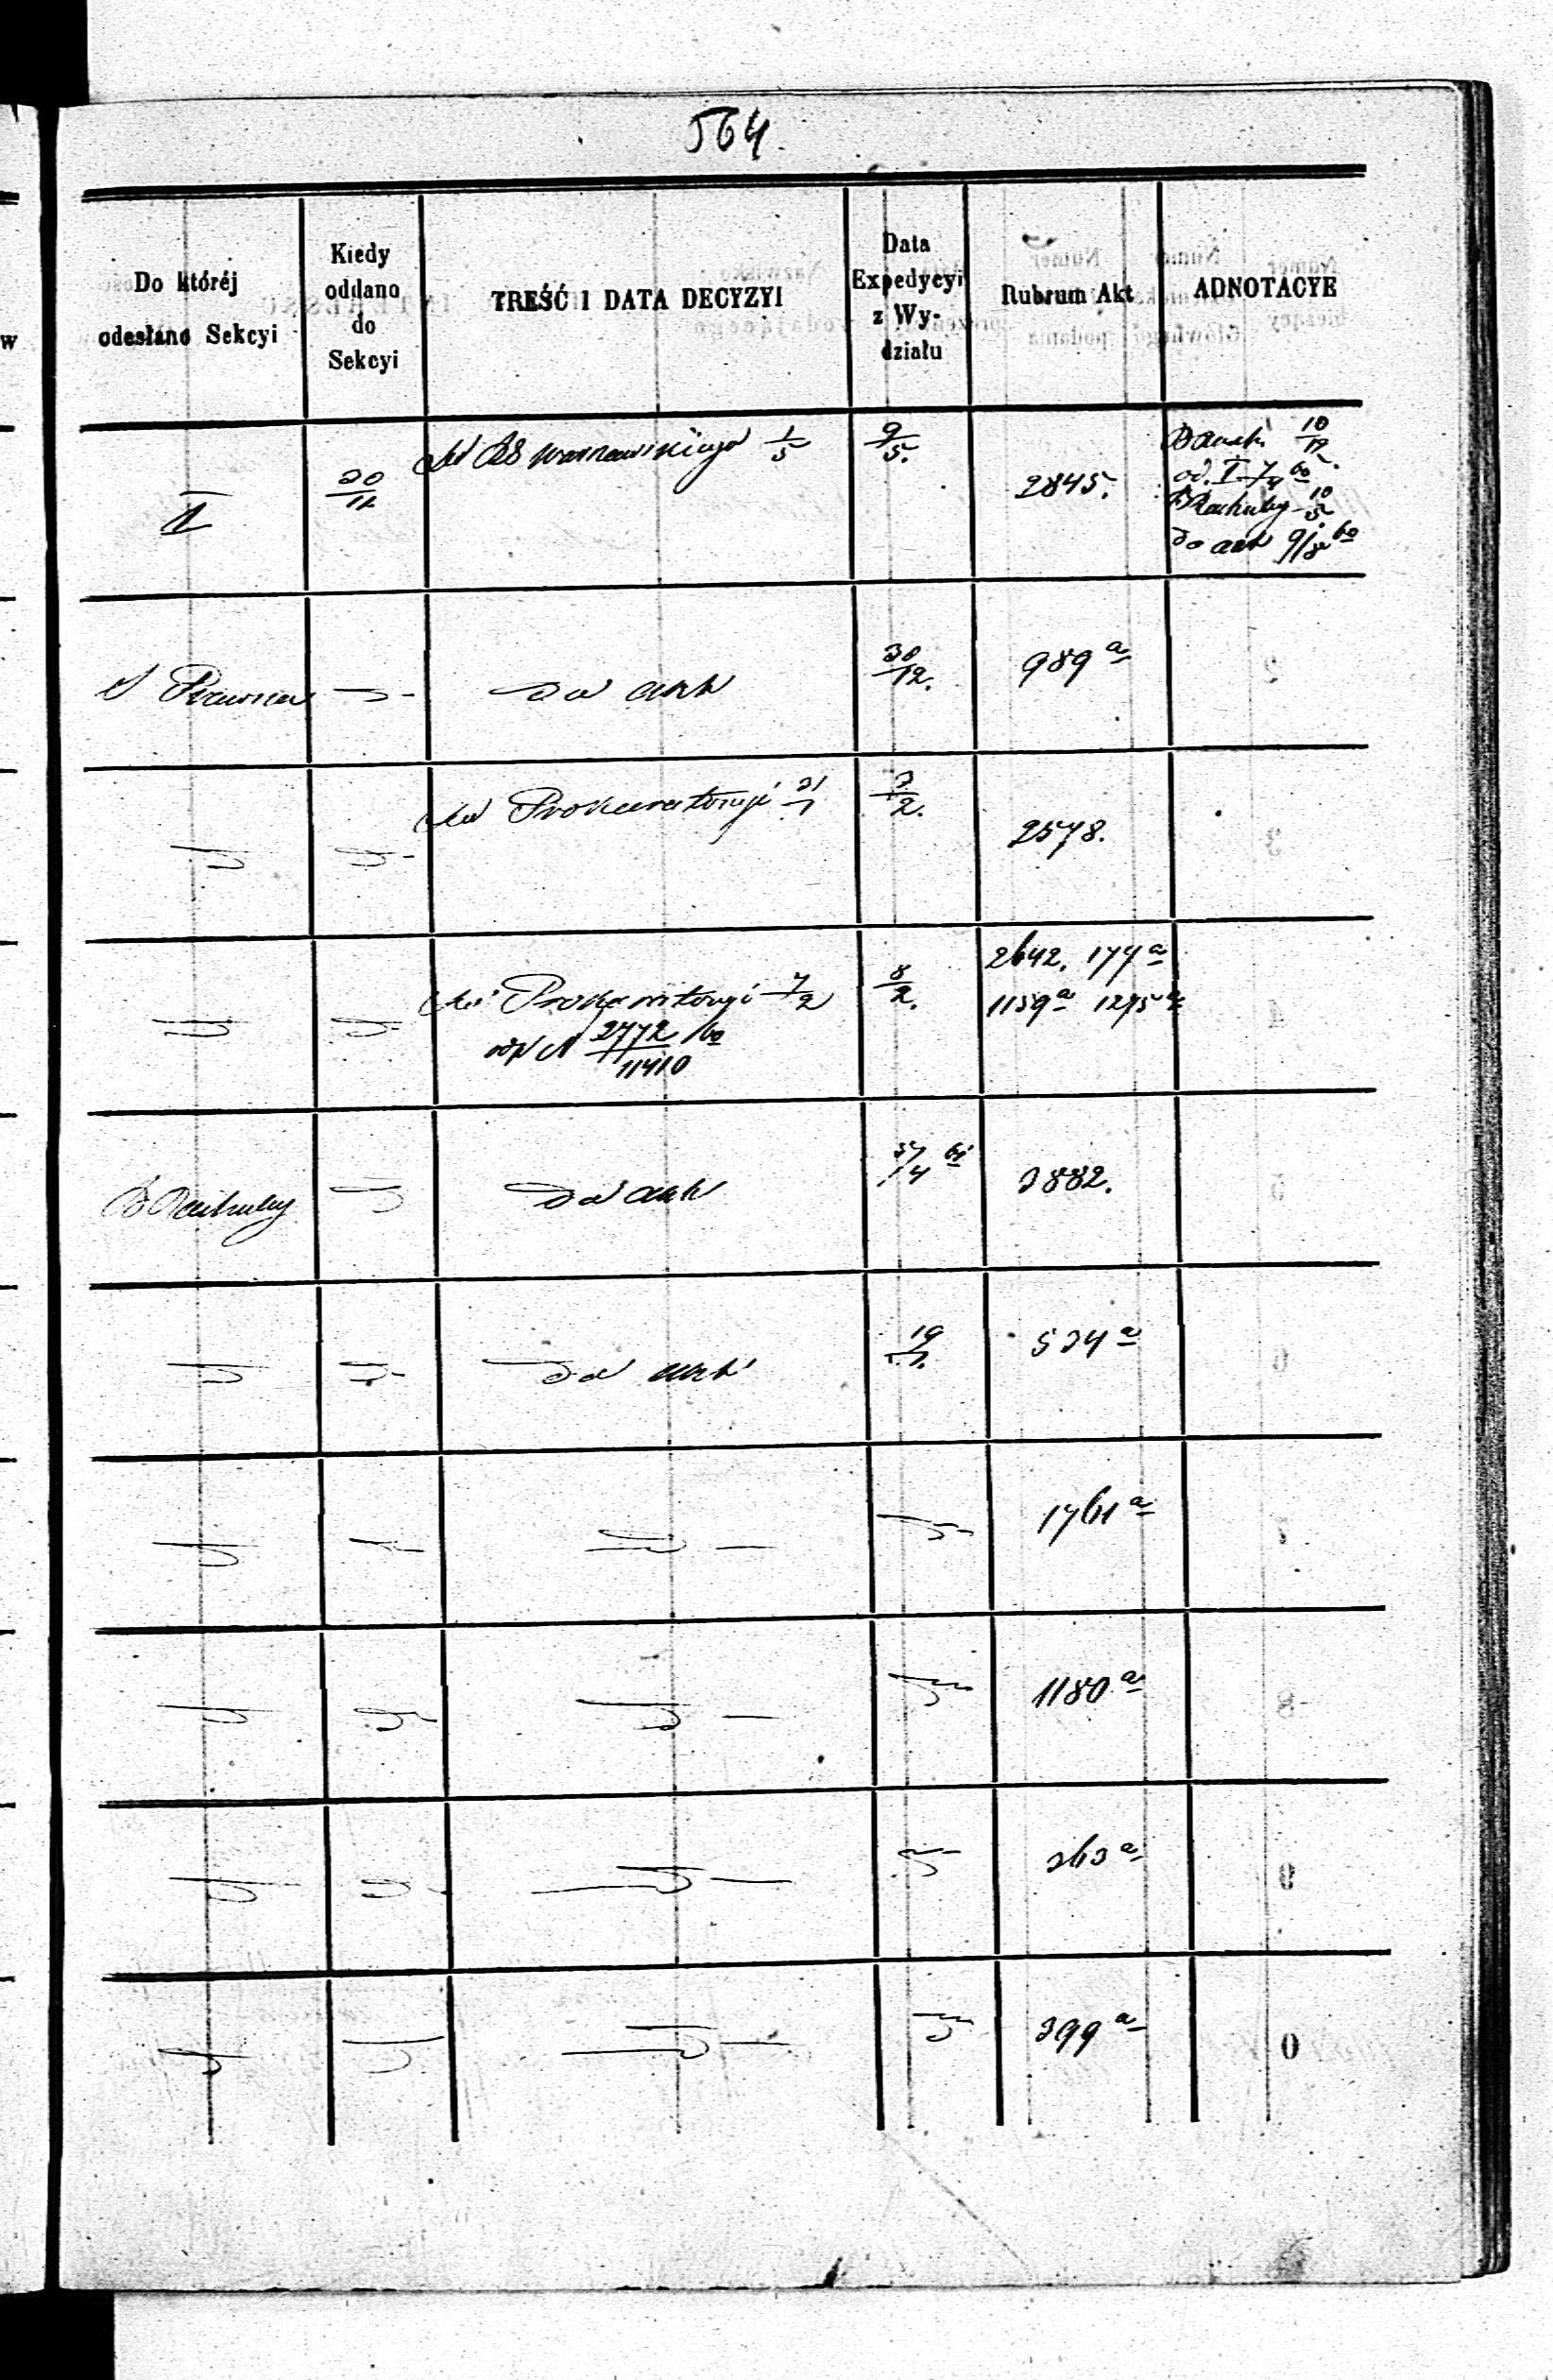 564.
Do któréj
odesłano Sekcyi
Kiedy
oddano
do
Sekcyi
TREŚĆ I DATA DECYZYI
Data
Expedycyi
z Wy-
działu
Rubrum Akt
ADNOTACYE
II
30/11
Warszawskiego 1/5
9/5.
2845.
10/12
od. I 7/4 60
Rachuby 10/5
do akt 9/8 60
S Prawna
do akt
30/12.
989 a
Prokuratoryi 31/1
3/2.
2578.
Prokuratoryi 7/2
2772/11410 60
8/2.
2642. 174 a
1159 a 1295 a
S Rachuby
do akt
/4 61
3882.
do akt
19/1.
534 a
1761 a
1180 a
363 a
399 a